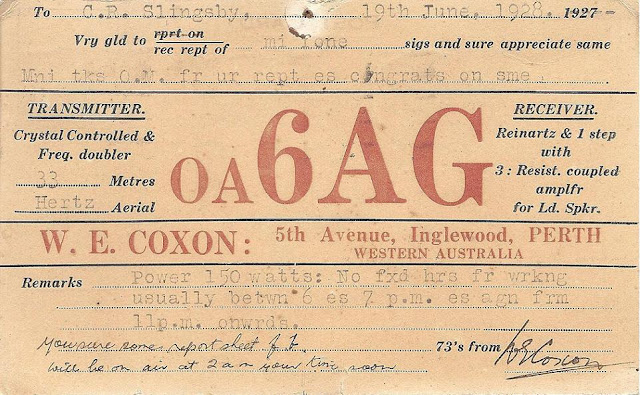 To C.R. Slingsby, 19th June, 1928. 1927-
Vry gld to rprt on
rec rept of mi fone sigs and sure appreciate same
Mni tks O.M. fr ur rept es congrats on sme
TRANSMITTER.
Crystal Controlled &
Freq. doubler
33 Metres
Hertz Aerial
OA6AG
RECEIVER.
Reinartz & 1 step
with
3 : Resist. coupled
amplfr
for Ld. Spkr.
W. E. COXON: 5th Avenue, Inglewood, PERTH
WESTERN AUSTRALIA
Remarks Power 150 watts: No fxd hrs fr wrkng
usually betwn 6 es 7 p.m. es agn frm
11p.m. onwrds.
some report sheet
will be on air at 2 am your time soon
73's from WECoxon